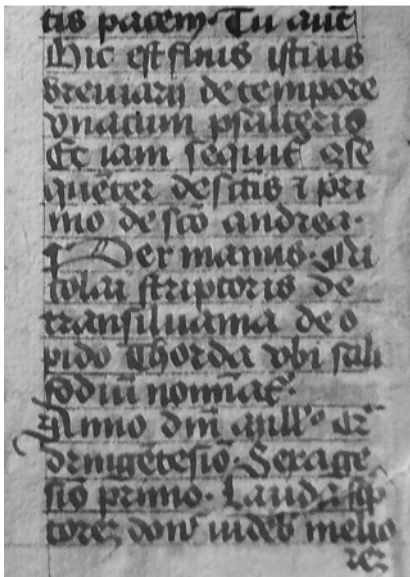 tis pacem. Tu aut̄
Hic est finis istius
breuiarij de tempore
vnacum psalterio
Et iam sequit̄ ꝯse
quēter de sc̄tis ⁊ pri
mo de sc̄o andrea.
Per manus. Ni
colai scriptoris de
transiluania de o
pido Thorda vbi sali
fodiū
Anno dm̄ Mill̓o q̄
dringētesīo. Sexage
sīo primo. Lauda sc̓p
torez don̄ videb̓ melio
rez